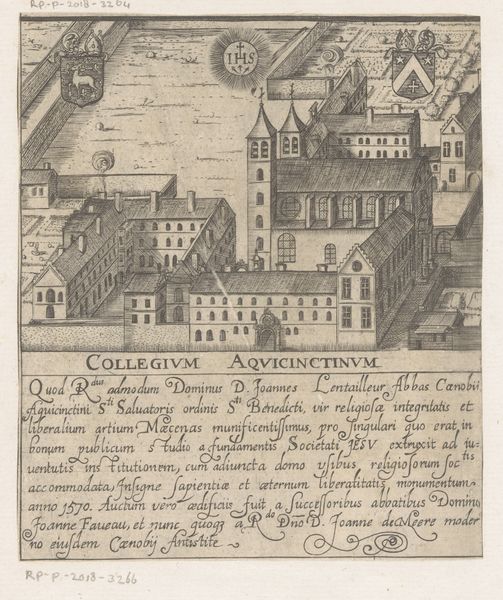 RP-P-2018-3264
IHS
COLLEGIVM AQVICINCTINVM
Quod Rdus admodum Dominus D. Joannes Lentailleur Abbas Cœnobij
Aquicinctini Sti Saluatoris ordinis Sti Benedicti, vir religiosæ integritatis et
liberalium artium Mæcenas munificentissimus, pro singulari quo erat in
bonum publicum studio a fundamentis Societati JESV extruxit ad iu-
uentutis institutionem, cum adiuncta domo vsibus religiosorum Soctis
accommodata, Insigne sapientiæ et æternum liberalitatis monumentum
anno 1570. Auctum vero ædificiis fuit a Successoribus abbatibus Domino
Joanne Faueau, et nunc quoqz a Rdo Dno D. Joanne de Meere moder
no eiusdem Cœnobij Antistite
RP-P-2018-3266